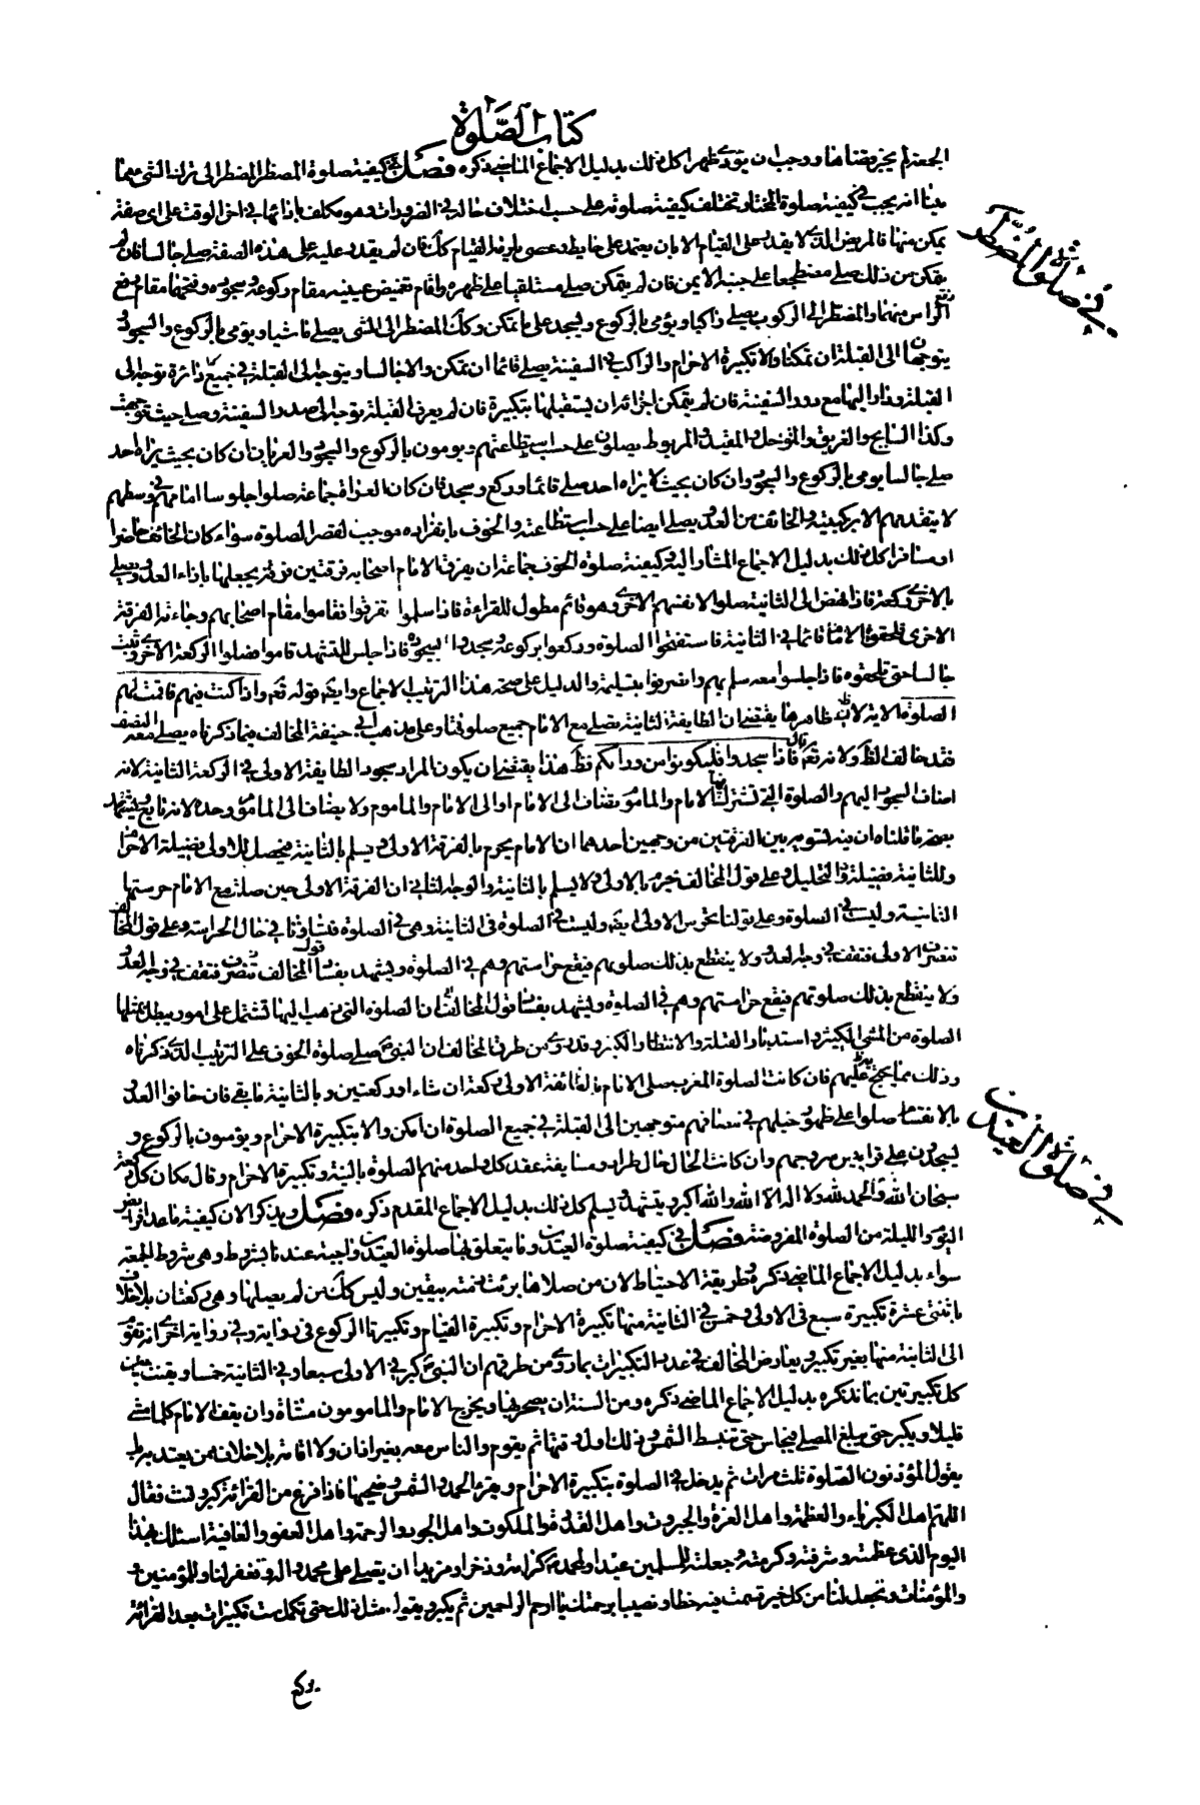 كتاب الصلوة
الجمعة لم يجز قضاها ووجب ان يؤدى ظهرا كل ذلك بدليل الاجماع الماضي ذكره فصل في كيفية صلوة المضطر المضطر الى ترك الشئ مما
بينا انه يجب في كيفية صلوة المختار وتختلف كيفية صلوته على حسب اختلاف حاله في الضرورات وهو مكلف بادائها في اخر الوقت على اى صفة
يمكن منها فالمريض الذي لا يقدر على القيام الا بان يعتمد على حايط او عصى يلزمه القيام كك فان لم يقدر عليه على هذه الصفة صلى جالسا فان لم
يتمكن من ذلك صلى مضطجعا على جنبه الايمن فان لم يتمكن صلى مستلقيا على ظهره واقام تغميض عينيه مقام ركوعه وسجوده وفتحهما مقام رفع
الراس منهما والمضطر الى الركوب يصلى راكبا ويؤمى بالركوع ويسجد على ما تمكن وكك المضطر الى المشى يصلى ماشيا ويؤمى بالركوع والسجود
يتوجهان الى القبلة ان تمكنا والا تكبيرة الاحرام والراكب في السفينة يصلى قائما ان تمكن والا جالسا ويتوجه الى القبلة في جميع صلوته فان دارة توجه الى
القبلة ودار اليها مع دور السفينة فان لم يتمكن اجزائه ان يستقبلها بتكبيرة فان لم يعرف القبلة توجه الى صدر السفينة وصلى حيث توجهت
وكذا السابح والغريق والمتوحل والمقيد والمربوط يصلون على حسب استطاعتهم ويومون بالركوع والسجود والعريان ان كان بحيث يراه احد
صلى جالسا يومى بالركوع والسجود وان كان بحيث لا يراه احد صلى قائما وركع وسجد فان كان العراة جماعة صلوا جلوسا امامهم في وسطهم
لا يتقدمهم الا بركبتيه والخائف من العدو يصلى ايضا على حسب استطاعته والخوف بانفراده موجب لقصر الصلوة سواء كان الخائف حاضرا
او مسافرا كل ذلك بدليل الاجماع المشار اليه وكيفية صلوة الخوف جماعة ان يفرق الامام اصحابه فرقتين فرقة يجعلها بازاء العدو ويصلى
بالاخرى ركعة فاذا نهض الى الثانية صلوا لانفسهم الاخرى وهو قائم مطول للقراءة فاذا سلموا تفرقوا فقاموا مقام اصحابهم وجاءت الفرقة
الاخرى فلحقوا الامام قائما في الثانية فاستفتحوا الصلوة وركعوا بركوعه وسجدوا بسجوده فاذا جلس للتشهد قاموا فصلوا الركعة الاخرى وثبت
جالسا حتى تلحقوه فاذا جلسوا معه سلم بهم وانصرفوا بتسليمه والدليل على صحة هذا الترتيب الاجماع وايضا قوله تعه واذا كنت فيهم فاقمت لهم
الصلوة الاية لان ظاهرها يقتضى ان الطايفة الثانية تصلى مع الامام جميع صلوتها وعلى مذهب ابي حنيفة المخالف فيما ذكرناه يصلى معه النصف
فقد خالف الظ ولانه تعه قال فاذا سجدوا فليكونوا من ورائكم فظ هذا يقتضى ان يكون المراد سجود الطايفة الاولى في الركعة الثانية لانه
اضاف السجود اليهم والصلوة التي تشترك فيها الامام والماموم تضاف الى الامام او الى الامام والماموم ولا يضاف الى الماموم وحده لانه تابع ويشهد
بصحة ما قلناه ان فيه تسوية بين الفرقتين من وجهين احدهما ان الامام يحرم بالفرقة الاولى ويسلم بالثانية فيحصل للاولى فضيلة الاحرام
وللثانية فضيلة التحليل وعلى قول المخالف يحرم بالاولى ولا يسلم بالثانية والوجه الثاني ان الفرقة الاولى حين صلت مع الامام حرستها
الثانية وليست في الصلوة وعلى قولنا تحرس الاولى ايضا وليست في الصلوة في الثانية وهي في الصلوة فتساوتا في حال الحراسة وعلى قول المخالف
تنصرف الاولى فتقف في وجه العدو ولا ينقطع بذلك صلوتهم فيقع حراستهم وهم في الصلوة ويشهد بفساد قول المخالف تنصرف فتقف في وجه العدو
ولا ينقطع بذلك صلوتهم فيقع حراستهم وهم في الصلوة ويشهد بفساد قول المخالف ان الصلوة التي ذهب اليها تشتمل على امور يبطل بمثلها
الصلوة من المشى الكثير واستدبار القبلة والانتظار الكثير وقد روى من طرق المخالف ان النبي ص صلى صلوة الخوف على الترتيب الذي ذكرناه
وذلك مما يحتج به عليهم فان كانت الصلوة المغرب صلى الامام بالطائفة الاولى ركعة ان شاء او ركعتين وبالثانية ما بقى فان خافوا العدو
بالانقسام صلوا على ظهور خيلهم في مصافهم متوجهين الى القبلة في جميع الصلوة ان امكن والا بتكبيرة الاحرام ويؤمون بالركوع و
يسجدون على قرابيس سروجهم وان كانت الحال حال طراد ومسايفة عقد كل واحد منهم الصلوة بالنية وتكبيرة الاحرام وقال مكان كل ركعة
سبحان الله والحمد لله ولا اله الا الله والله اكبر ويتشهد ويسلم كل ذلك بدليل الاجماع المقدم ذكره فصل ويذكر الان كيفية ما عدا فرائض
اليوم والليلة من الصلوة المفروضة فصل في كيفية صلوة العيدين وما يتعلق بها صلوة العيدين واجبة عندنا بشروط وهي شروط الجمعة
سواء بدليل الاجماع الماضي ذكره وطريقة الاحتياط لان من صلاها برئت ذمته بيقين وليس كك من لم يصليها وهي ركعتان بلا خلاف
باثنتي عشرة تكبيرة سبع في الاولى وخمس في الثانية منها تكبيرة الاحرام وتكبيرة القيام وتكبيرتا الركوع في رواية وفي رواية اخرى انه يقوم
الى الثانية منها بغير تكبير ويعارض المخالف في عدد التكبيرات بما روى من طرقهم ان النبي ص كبر في الاولى سبعا وفي الثانية خمسا ويقنت بين
كل تكبيرتين بما نذكره بدليل الاجماع الماضي ذكره ومن السنة ان يصحر بها ويخرج الامام والمامومون مشاة وان يقف الامام كلما مشى
قليلا ويكبر حتى يبلغ المصلى فيجلس حتى تنبسط الشمس وذلك اول وقتها ثم يقوم والناس معه بغير اذان ولا اقامة بلا خلاف من يعتد به بل
يقول المؤذنون الصلوة ثلث مرات ثم يدخل في الصلوة بتكبيرة الاحرام ويقرء الحمد والشمس وضحيها فاذا فرغ من القرائة كبر وقنت فقال
اللهم اهل الكبرياء والعظمة واهل العزة والجبروت واهل القدرة والملكوت واهل الجود والرحمة واهل العفو والعافية اسئلك بهذا
اليوم الذى عظمته وشرفته وكرمته وجعلته للمسلمين عيدا ولمحمد ص كرامة وذخرا ومزيدا ان تصلى على محمد واله وتغفر لنا وللمؤمنين و
والمؤمنات وتجعل لنا من كل خير قسمت فيه حظا ونصيبا برحمتك يا ارحم الراحمين ثم يكبر ويقول مثل ذلك حتى تكملت تكبيرات بعد القرائة
ويركع
في صلوة المضطر
في صلوة العيدين